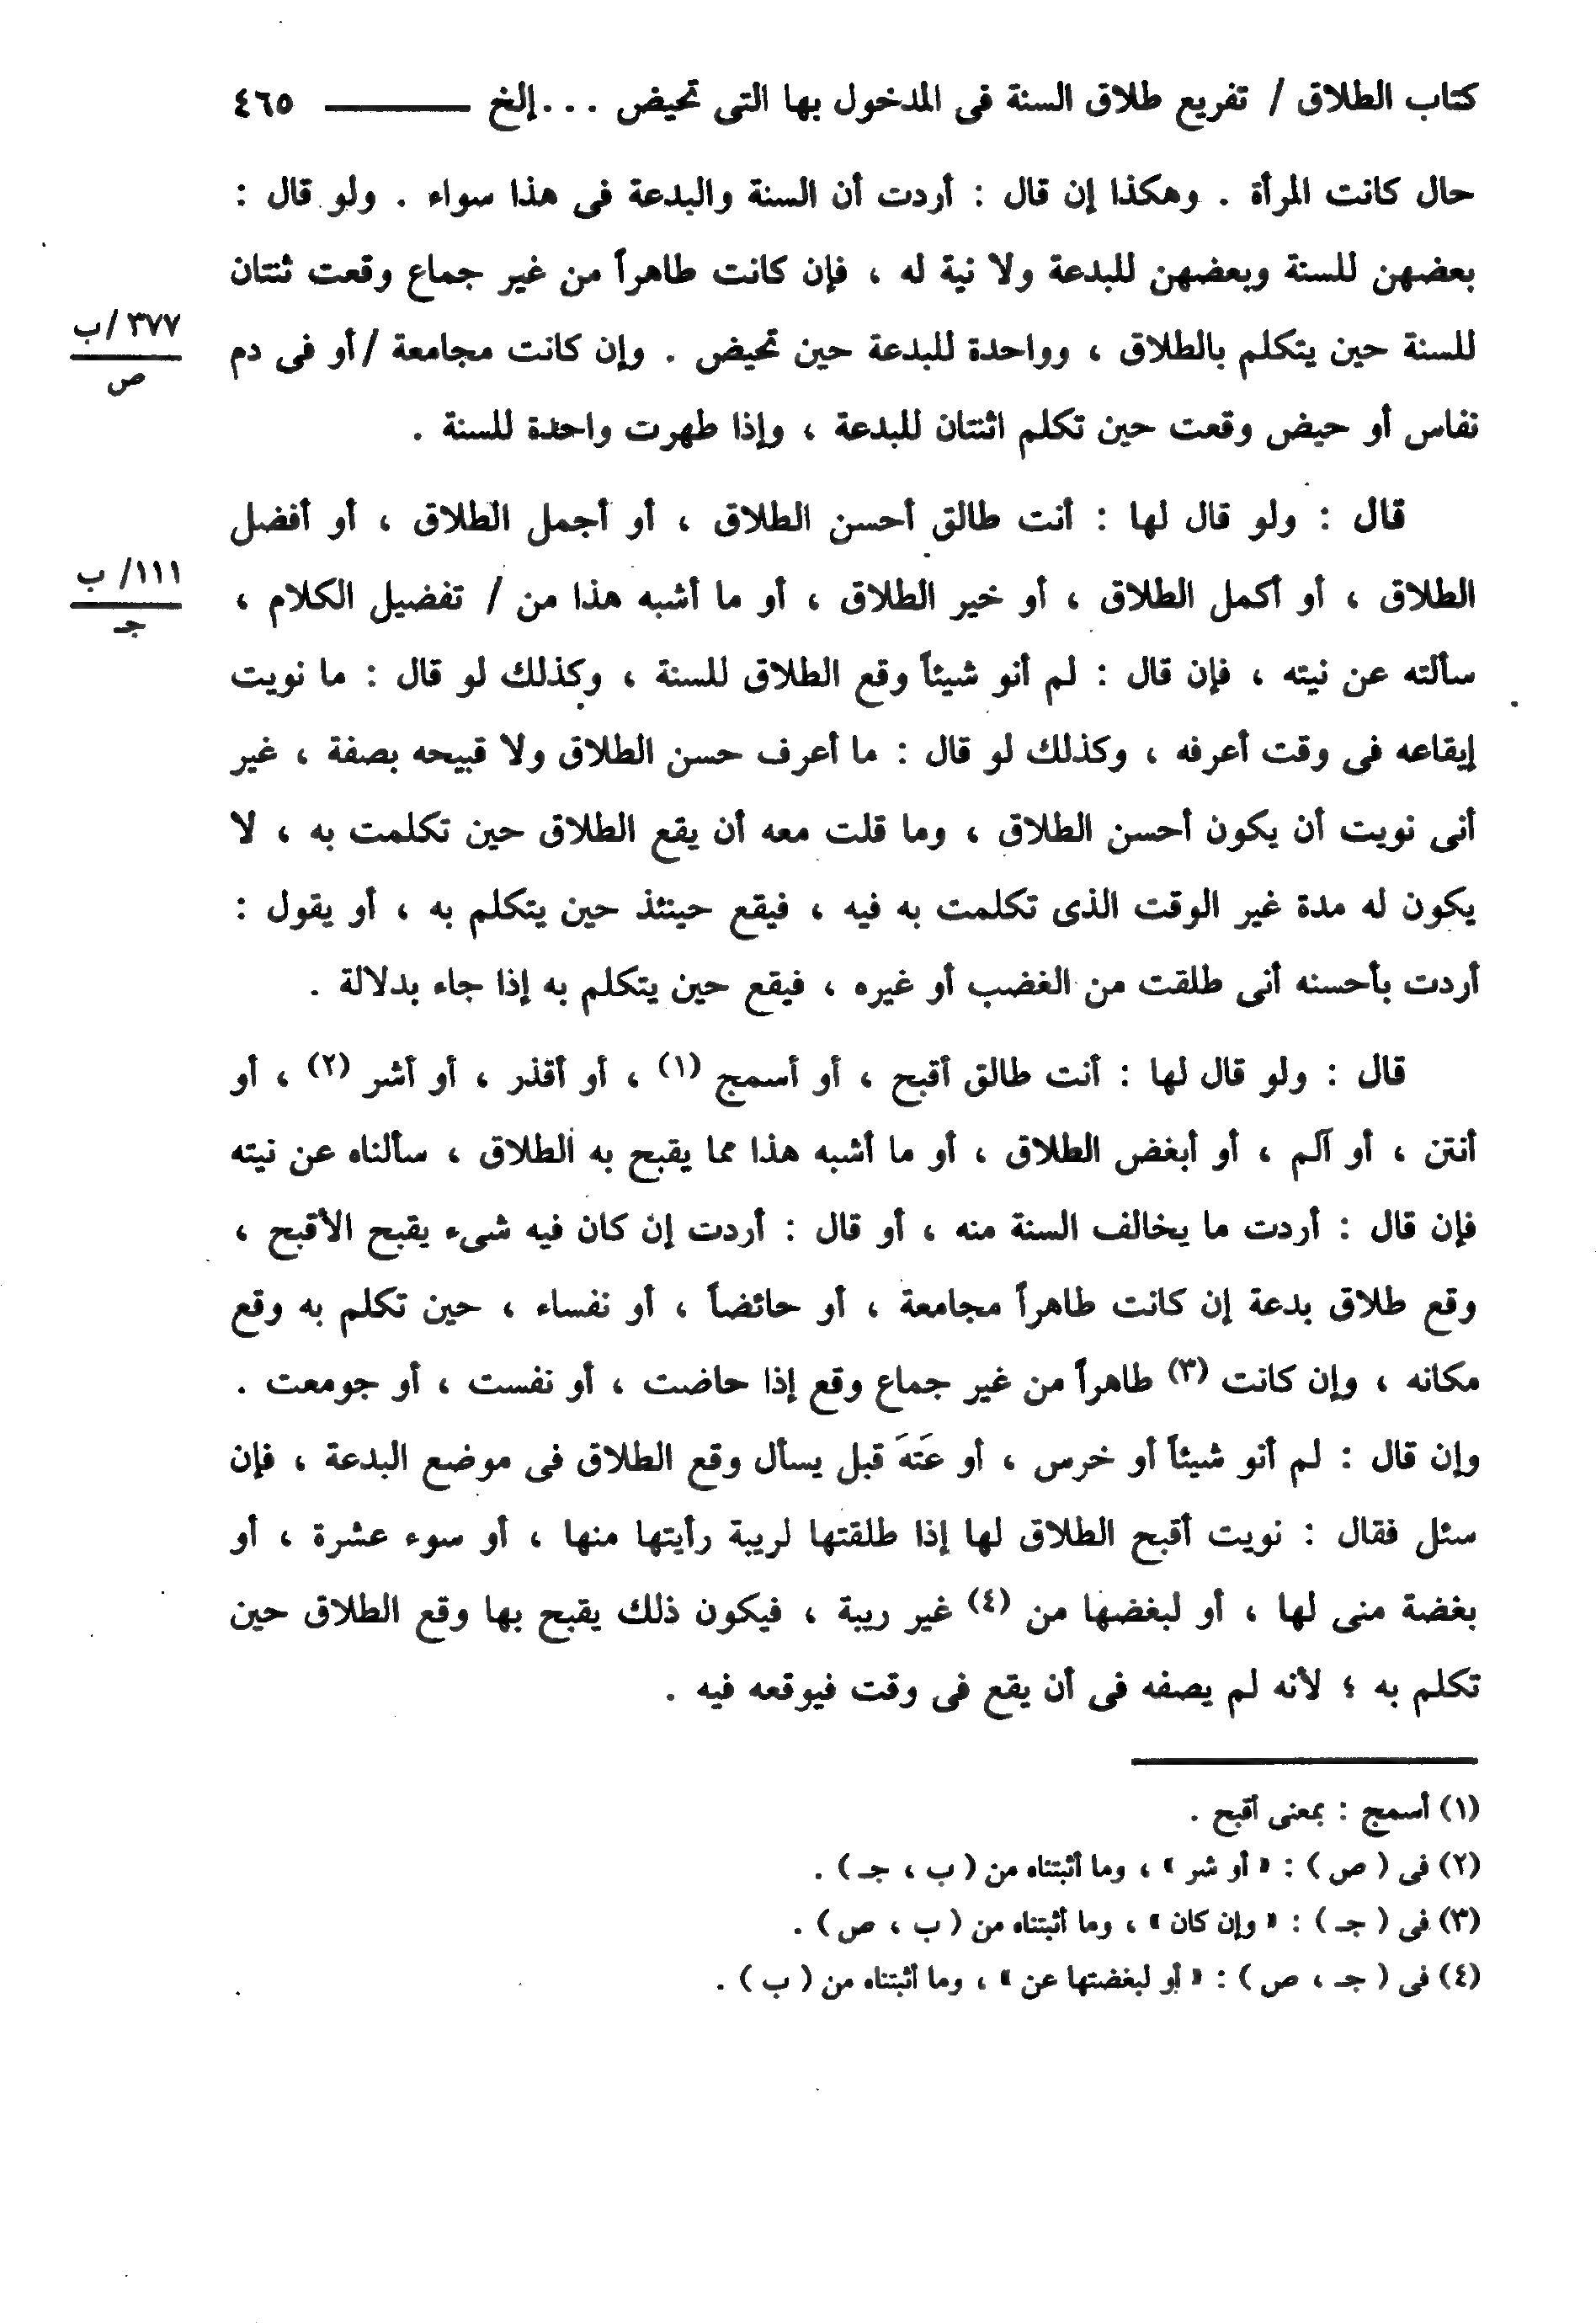 كتاب الطلاق / تفريع طلاق السنة فى المدخول بها التى تحيض . . . إلخ ——— ٤٦٥
حال كانت المرأة . وهكذا إن قال : أردت أن السنة والبدعة فى هذا سواء . ولو قال :
بعضهن للسنة وبعضهن للبدعة ولا نية له ، فإن كانت طاهراً من غير جماع وقعت ثنتان
للسنة حين يتكلم بالطلاق ، وواحدة للبدعة حين تحيض . وإن كانت مجامعة / أو فى دم
٣٧٧ / ب
ص
نفاس أو حيض وقعت حين تكلم اثنتان للبدعة ، وإذا طهرت واحدة للسنة .
قال : ولو قال لها : أنت طالق أحسن الطلاق ، أو أجمل الطلاق ، أو أفضل
الطلاق ، أو أكمل الطلاق ، أو خير الطلاق ، أو ما أشبه هذا من / تفضيل الكلام ،
١١١ / ب
جـ
سألته عن نيته ، فإن قال : لم أنو شيئاً وقع الطلاق للسنة ، وكذلك لو قال : ما نويت
إيقاعه فى وقت أعرفه ، وكذلك لو قال : ما أعرف حسن الطلاق ولا قبيحه بصفة ، غير
أنى نويت أن يكون أحسن الطلاق ، وما قلت معه أن يقع الطلاق حين تكلمت به ، لا
يكون له مدة غير الوقت الذى تكلمت به فيه ، فيقع حينئذ حين يتكلم به ، أو يقول :
أردت بأحسنه أنى طلقت من الغضب أو غيره ، فيقع حين يتكلم به إذا جاء بدلالة .
قال : ولو قال لها : أنت طالق أقبح ، أو أسمج (١) ، أو أقذر ، أو أشر (٢) ، أو
أنتن ، أو آلم ، أو أبغض الطلاق ، أو ما أشبه هذا مما يقبح به الطلاق ، سألناه عن نيته
فإن قال : أردت ما يخالف السنة منه ، أو قال : أردت إن كان فيه شىء يقبح الأقبح ،
وقع طلاق بدعة إن كانت طاهراً مجامعة ، أو حائضاً ، أو نفساء ، حين تكلم به وقع
مكانه ، وإن كانت (٣) طاهراً من غير جماع وقع إذا حاضت ، أو نفست ، أو جومعت .
وإن قال : لم أنو شيئاً أو خرس ، أو عَتَهَ قبل يسأل وقع الطلاق فى موضع البدعة ، فإن
سئل فقال : نويت أقبح الطلاق لها إذا طلقتها لريبة رأيتها منها ، أو سوء عشرة ، أو
بغضة منى لها ، أو لبغضها من (٤) غير ريبة ، فيكون ذلك يقبح بها وقع الطلاق حين
تكلم به ؛ لأنه لم يصفه فى أن يقع فى وقت فيوقعه فيه .
(١) أسمج : بمعنى أقبح .
(٢) فى ( ص ) : « أو شر » ، وما أثبتناه من ( ب ، جـ ) .
(٣) فى ( جـ ) : « وإن كان » ، وما أثبتناه من ( ب ، ص ) .
(٤) فى ( جـ ، ص ) : « أو لبغضتها عن » ، وما أثبتناه من ( ب ) .